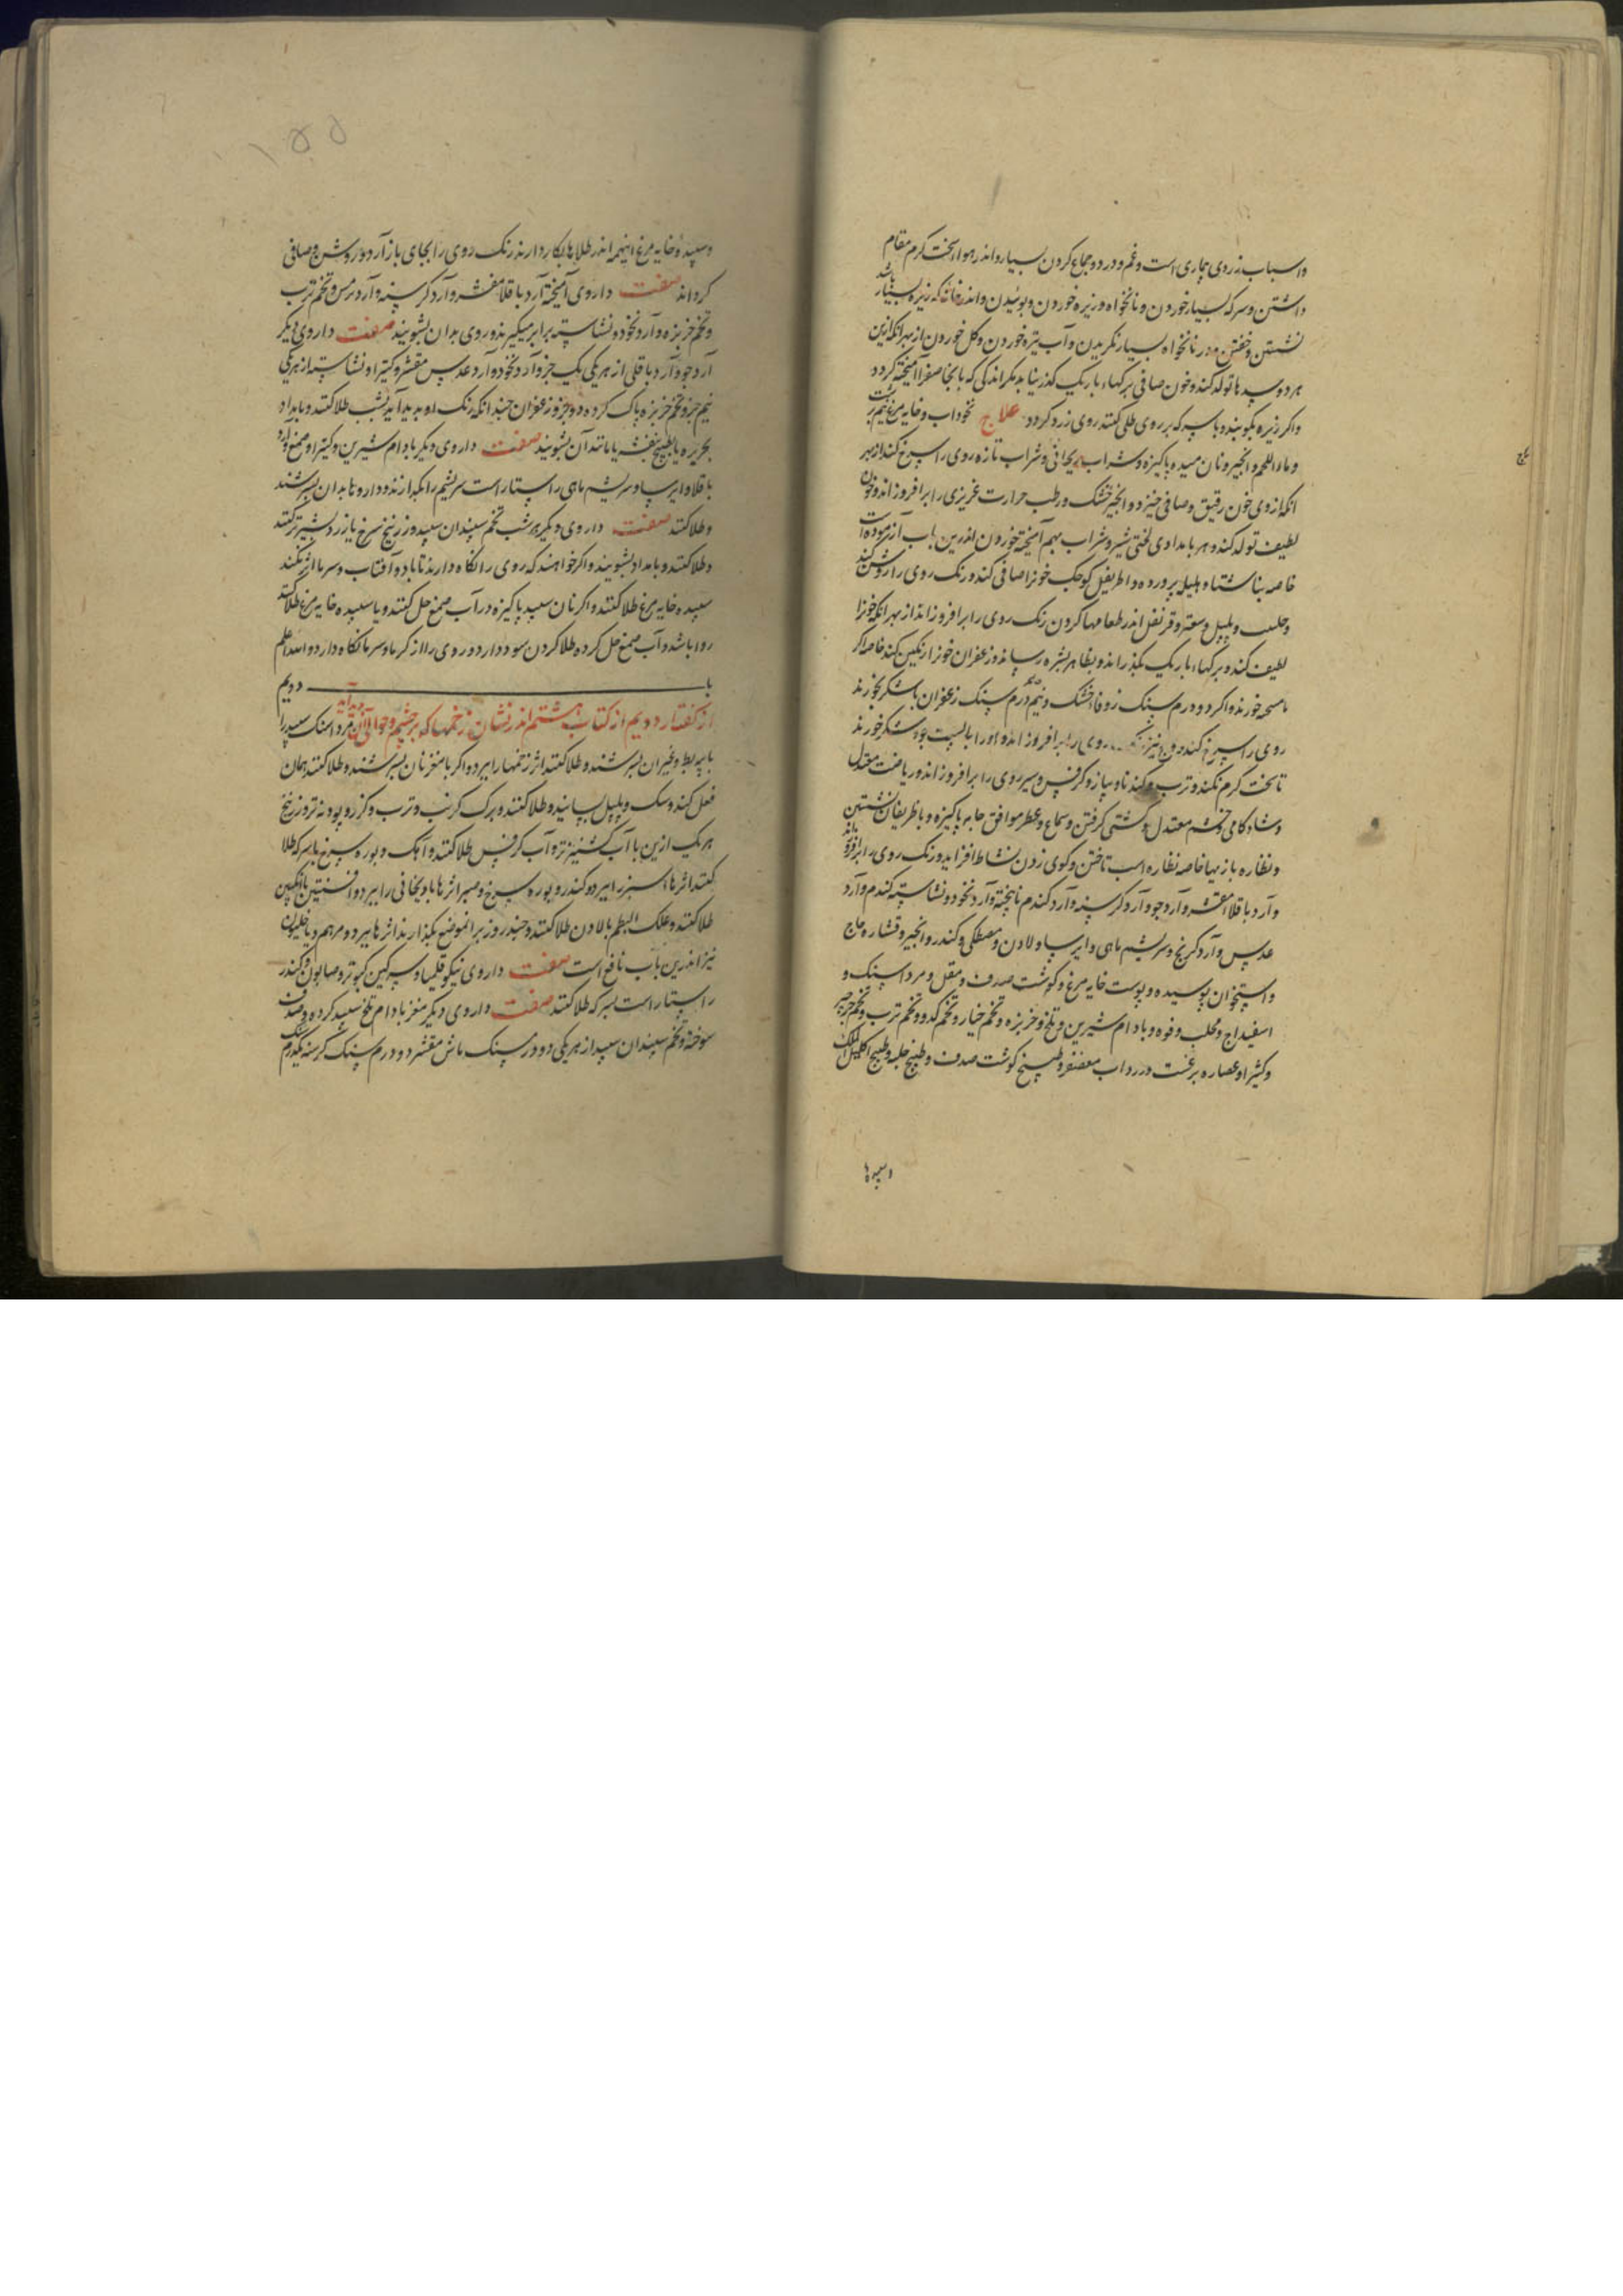 واسباب زردی روی بیماری است وغم ودرد وجماع کردن بسیار واندر هوا سخت کرم مقام
داشتن وسرکه بسیار خوردن ونانخواه وزیره خوردن وبوئیدن واندر خانه که زیره بسیار باشد
نشستن وخفتن ودر نانخواه بسیار نکریدن وآب تیره خوردن وکل خوردن از بهر انکه ازین
هر دو سدها تولد کند وخون صافی برکهاء باریک کذر نیابد مکر اندکی که بانجا صفرا آمیخته کردد
واکر زیره بکوبند وباسرکه بر روی طلی کنند روی زرد کردد علاج نخوداب وخایه مرغ نیم برشت
وماء اللحم وانجیر ونان میده پاکیزه وشراب ریحانی وشراب تازه روی را سرخ کند از بهر
انکه ازوی خون رقیق وصافی خیزد وانجیر خشک ورطب حرارت غریزی را برافروزاند وخون
لطیف تولد کند وهر بامدادی لختی شیر وشراب بهم آمیخته خوردن اندرین باب آزموده است
خاصه بناشتا وهلیله پرورده واطریفل کوچک خونرا صافی کند ورنک روی را روشن کند
وحلیت وپلپل وسعتر وقرنفل اندر طعامها کردن رنک روی را برافروزاند از بهر انکه خونرا
لطیف کند وبرکهاء باریک بکذراند وبظاهر بشره رساند وزعفران خونرا رنکین کند خاصه اکر
با می خورند واکر دو درم سنک زوفا خشک ونیم درم سنک زعفران باشکر بخورند
روی را سرخ کند ووج نیز روی را برافروزاند واورا باپست جو وشکر خورند
تا سخت کرم نکند وترب وکندنا وپیاز وکرفس وسیر روی را برافروزاند وریاضت معتدل
وشادکامی وخشم معتدل وکشتی کرفتن وسماع وعطر موافق جامه پاکیزه وباظریفان نشستن
ونظاره بازیها خاصه نظاره اسب تاختن وکوی زدن نشاط افزاید ورنک روی را برافروزاند
وآرد باقلا مقشر وآرد جو وآرد کرسنه وآرد کندم ناپخته وآرد نخود ونشاسته کندم وآرد
عدس وآرد کرنج وسریشم ماهی وایرسا ولادن ومصطکی وکندر وانجیر وقشاره عاج
واستخوان پوسیده وپوست خایه مرغ وکوشت صدف ومقل ومرداسنک و
اسفیداج ومحلب وفوه وبادام شیرین وتلخ وخربزه وتخم خیار وتخم کدو وتخم ترب وتخم جرجیر
وکثیرا وعصاره برغست دردآب معصفر وطبیخ کوشت صدف وطبیخ حلبه وطبیخ اکلیل الملک
وسپیدها
وسپیده خایه مرغ اینهمه اندر طلاها بکار دارند رنک روی را بجای باز آرد وروشن وصافی
کرداند صفت داروی آمیخته آرد باقلا مقشر وآرد کرسنه وآرد ترمس وتخم ترب
وتخم خربزه وآرد نخود ونشاسته برابر میکیرند وروی بدان بشویند صفت داروی دیکر
آرد جو وآرد باقلی از هر یکی یک جزو آرد نخود وآرد عدس مقشر وکتیرا ونشاسته از هر یکی
نیم جزو وتخم خربزه پاک کرده دو جزو زعفران چندانکه رنک او پدید آید بشب طلا کنند وبامداد
بحریره یا بطبیخ بنفشه یا مانند آن بشویند صفت داروی دیکر بادام شیرین وکتیرا وصمغ وآرد
باقلا وایرسا وسریشم ماهی راستاراست سریشم را بکدازند وداروها بدان بسرشند
وطلا کنند صفت داروی دیکر هر شب تخم سپندان سپید وزرنیخ سرخ یا زرد بشیر تر کنند
وطلا کنند وبامداد بشویند واکر خواهند که روی را نکاه دارند تا باد وآفتاب وسرما اثر نکند
سپیده خایه مرغ طلا کنند واکر نان سپید پاکیزه در آب صمغ حل کنند ویا سپیده خایه مرغ طلا کنند
روا باشد وآب صمغ حل کرده طلا کردن سود دارد وروی را از کرما وسرما نکاه دارد والله اعلم
باب دویم
از کفتار دویم از کتاب هشتم اندر نشان زخمها که بر چشم وحوالی آن پدید آید مرداسنک سپید را
با پیه بط وغیر آن بسرشند وطلا کنند اثر زخمها را ببرد واکر با مغز نان بسرشند وطلا کنند همان
فعل کند وسک وپلپل بسایند وطلا کنند وبرک کرنب وترب وکزر وپودنه تر وزرنیخ
هر یک ازین با آب کشنیز تر وآب کرفس طلا کنند وآهک وبوره سرخ با سرکه طلا
کنند اثرها سبز را ببرد وکندر وبوره سرخ وصبر اثرها بادنجانی را ببرد وافسنتین با انکبین
طلا کنند وعلک البطم بالادن طلا کنند وچند روز بر انموضع بکذارند اثرها ببرد ومرهم دیاخیلون
نیز اندرین باب نافع است صفت داروی نیکو قلیمیا وسرکین کبوتر وصابون وکندر
راستاراست بسرکه طلا کنند صفت داروی دیکر مغز بادام تلخ سپید کرده وصدف
سوخته وتخم سپندان سپید از هر یکی دو درم سنک ماش مقشر دو درم سنک کرسنه یکدرم سنک